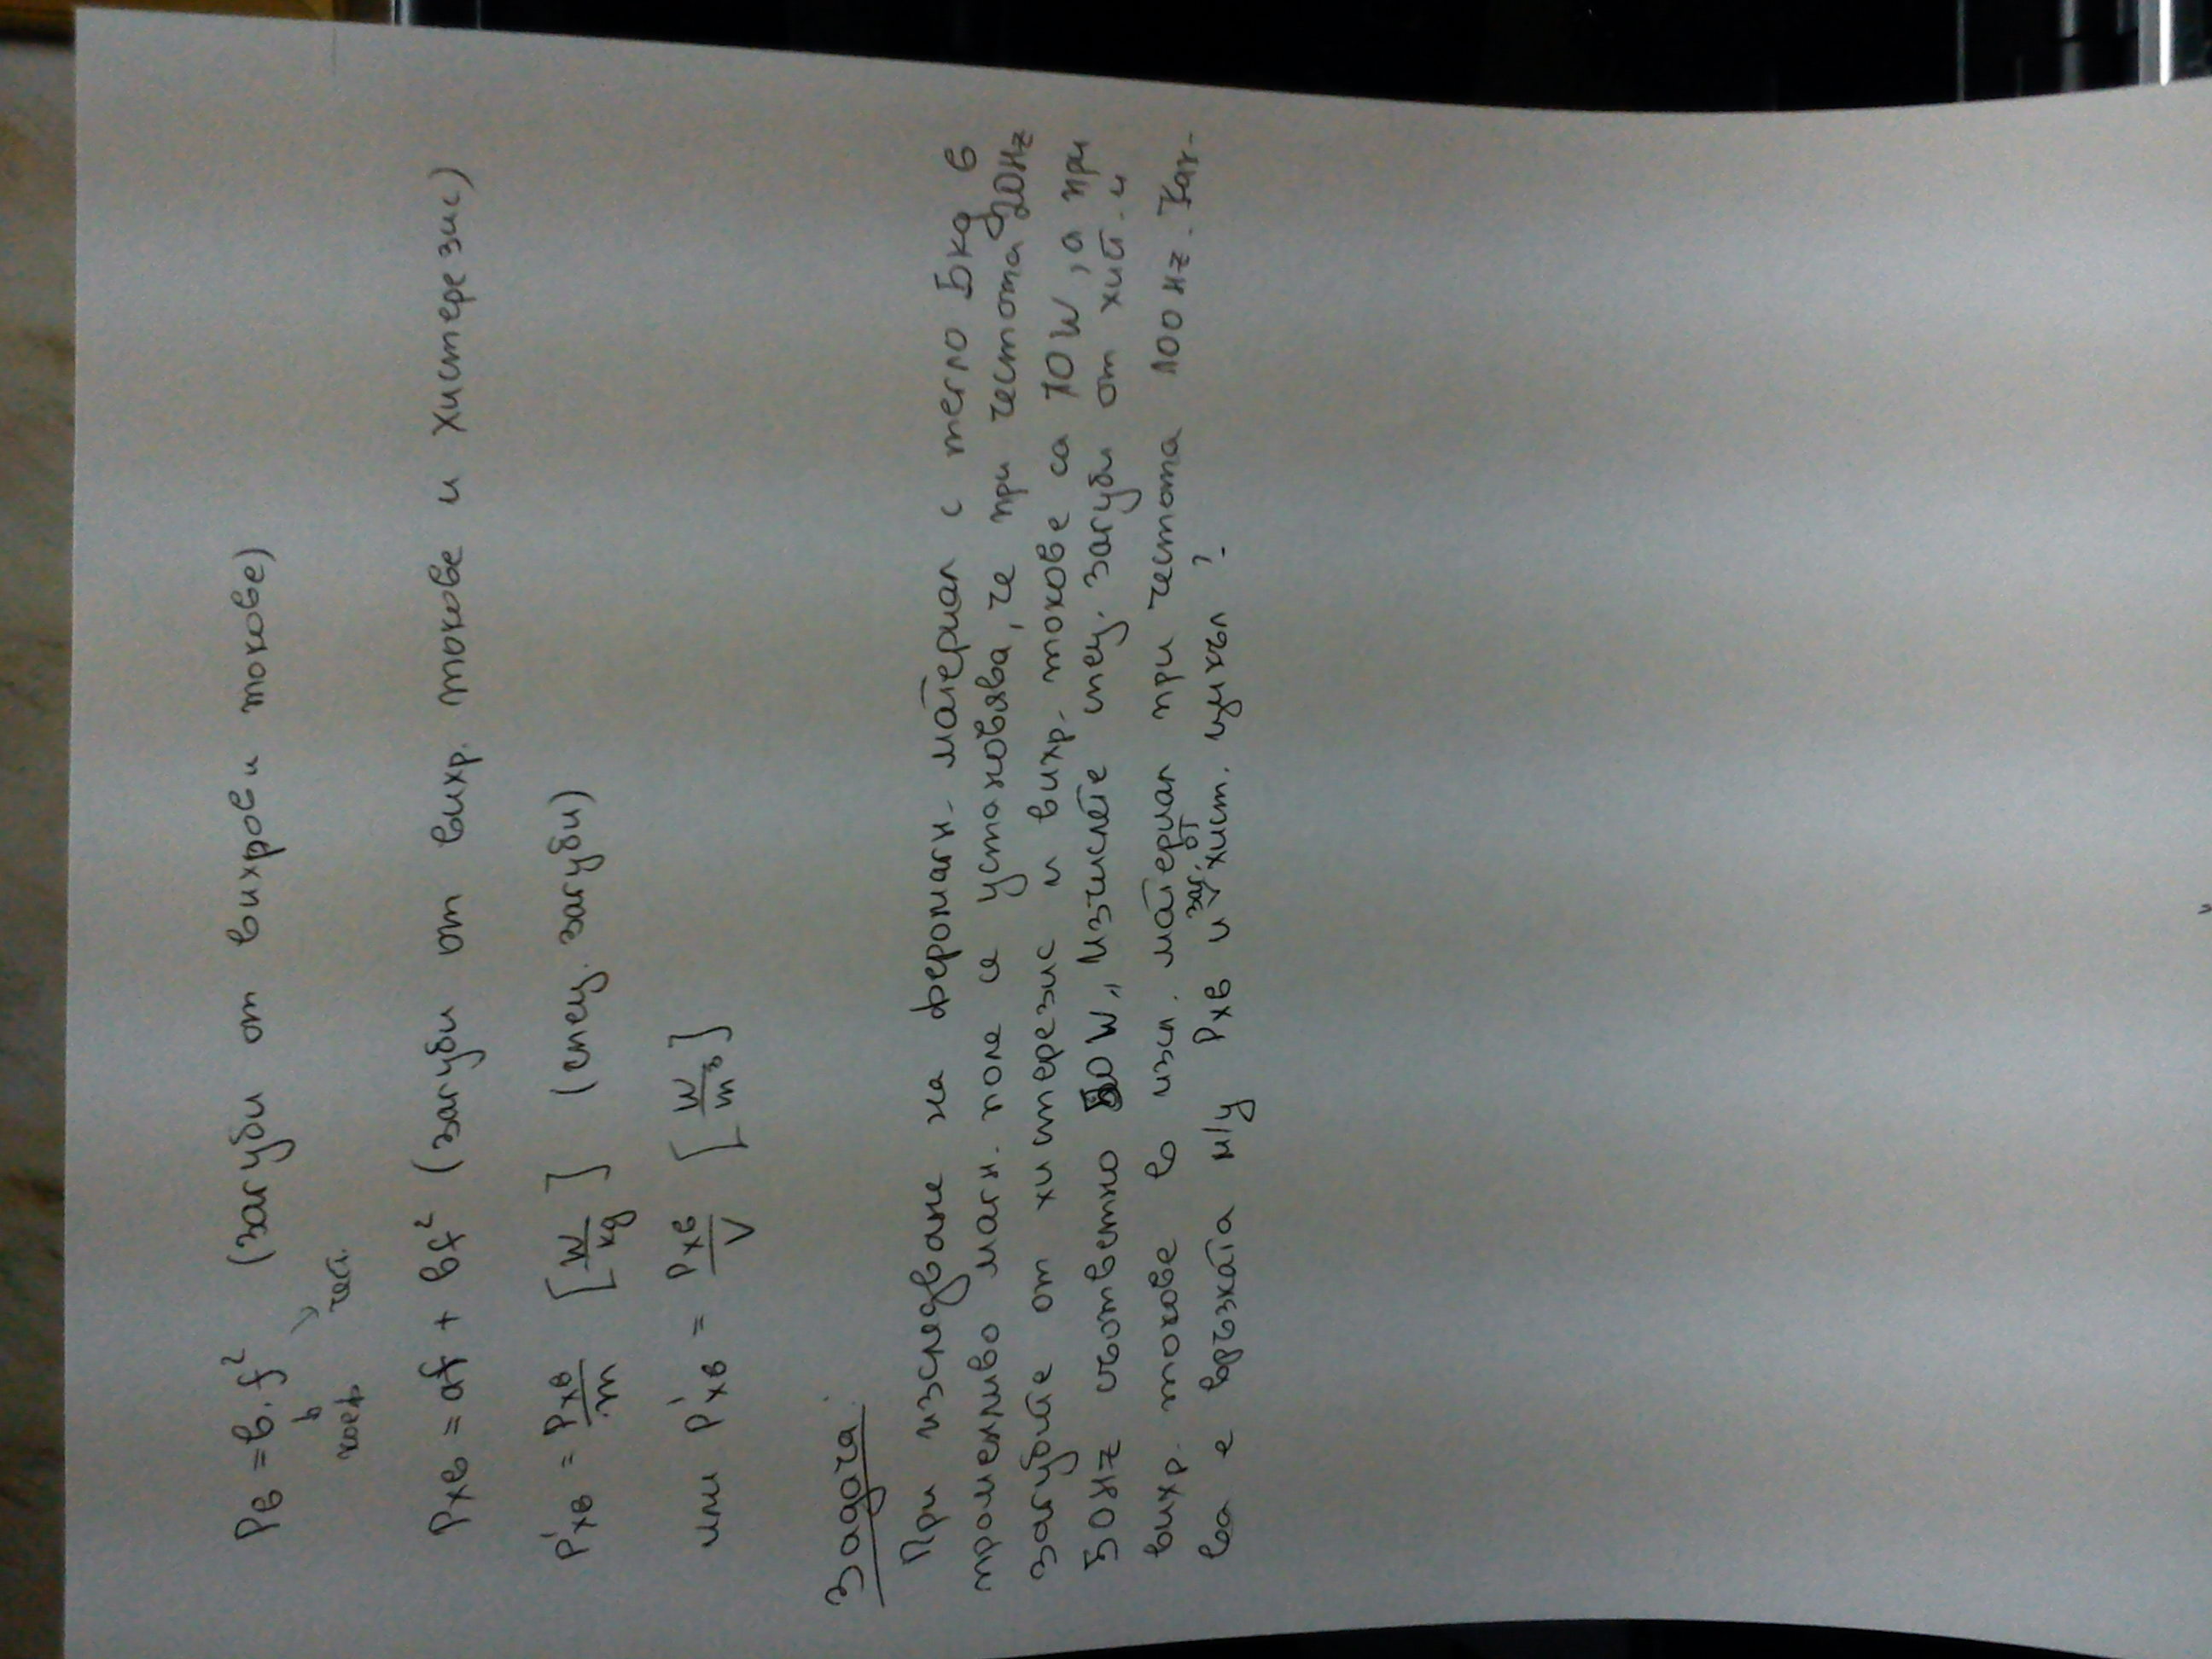 Pв = в.f² (загуби от вихрови токове)
коеф. чест.
Pхв = af + вf² (загуби от вихр. токове и хистерезис)
P'хв = Pхв/m [W/kg] (спец. загуби)
или P'хв = Pхв/V [W/m³]
Задача:
При изследване на феромагн. материал с тегло 5кg в
променливо магн. поле се установява, че при честота 20Hz
загубите от хистерезис и вихр. токове са 10W, а при
50Hz съответно 50W. Изчислете спец. загуби от хист. и
вихр. токове в изсл. материал при честота 100Hz. Как-
ва е връзката м/у Pхв и заг. от хист. цикъл?